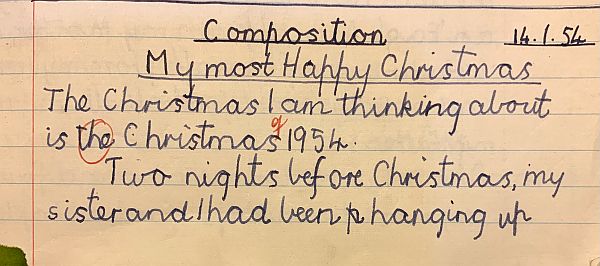 Composition 14.1.54
My most Happy Christmas
The Christmas I am thinking about
is the Christmas of 1954.
Two nights before Christmas, my
sister and I had been hanging up